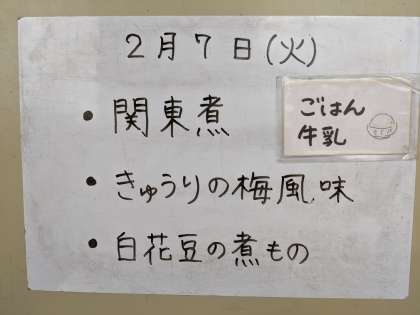 2月7日(火)
・関東煮
ごはん
牛乳
・きゅうりの梅風味
・白花豆の煮もの